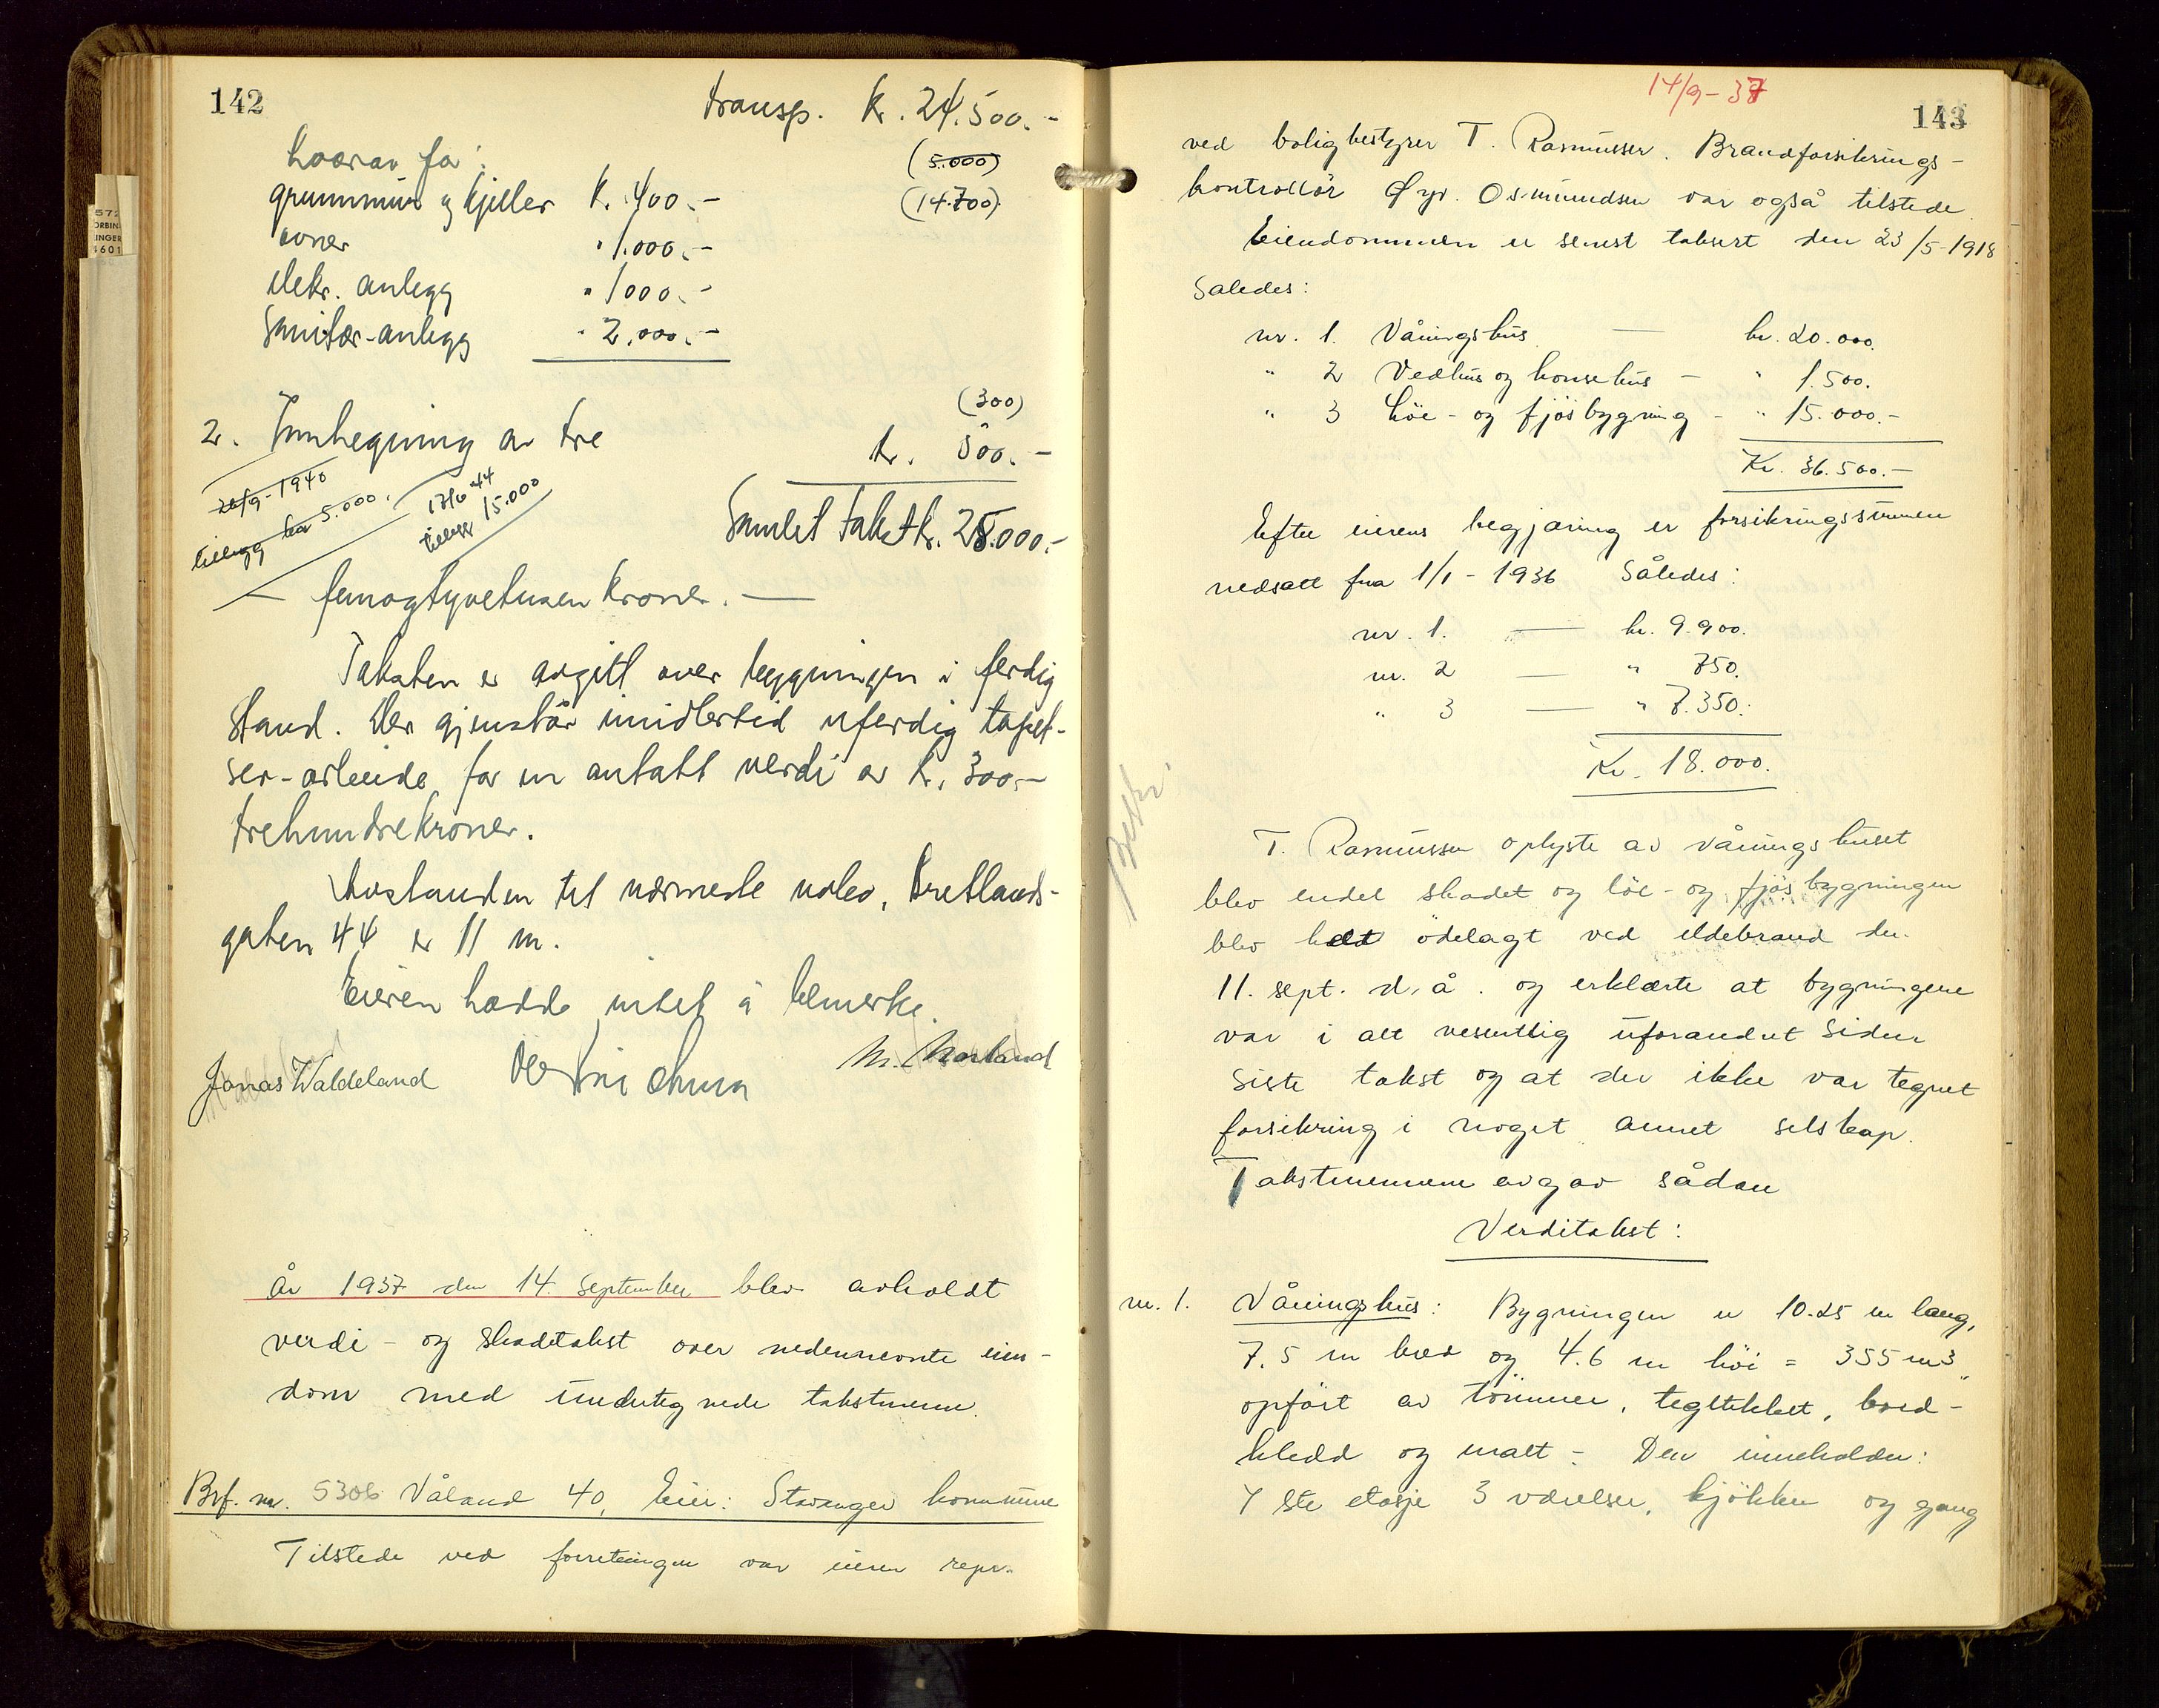 142
transp. Kr. 24.500.-
hvorav for:
(5.000)
grunnmur og kjeller Kr. 400.-
(14.700)
ovner " 1.000.-
elekr. anlegg " 1000.-
Sanitær-anlegg " 2.000.-
(300)
2. Innhegning av tre kr. 500.-
20/9-1940
tillegg kr 5.000.
13/6 44
tillegg 15.000
Samlet takst kr. 25.000.-
— femogtyvetusen kroner. —
Taksten er avgitt over bygningen i ferdig
stand. Der gjenstår imidlertid uferdig tapet-
ser-arbeide for en antatt verdi av kr. 300.-
trehundrekroner.
Avstanden til nærmeste nabo, Bretlands-
gaten 44 er 11 m.
Eieren hadde intet å bemerke.
Jonas Waldeland
M. Norland
År 1937 den 14. September blev avholdt
verdi- og skadetakst over nedennevnte eien-
dom med undertegnede takstmenn.
Brf. nr. 5306 Våland 40, Eier: Stavanger kommune
Tilstede ved forretningen var eieren repr.
14/9-37
143
ved boligbestyrer T. Rasmussen. Brandforsikrings-
kontrollör Øyv. Osmundsen var også tilstede.
Eiendommen er senest taksert den 23/5-1918
Således:
nr. 1. Våningshus — kr. 20.000.
" 2 Vedhus og hönsehus — " 1.500.
" 3 Löe- og fjösbygning - " 15.000.-
Kr. 36.500.-
Efter eierens begjæring er forsikringssummen
nedsatt fra 1/1-1936 Således:
nr. 1. — kr. 9.900.
nr. 2 — " 750.
" 3 — " 7.350.
Kr. 18.000.
T. Rasmussen oplyste at våningshuset
blev endel skadet og löe- og fjösbygningen
blev helt ödelagt ved ildebrand den
11. sept. d. å. og erklærte at bygningene
var i alt vesentlig uforandret siden
siste takst og at der ikke var tegnet
forsikring i noget annet selskap.
Takstmennene avgav sådan
Verditakst:
nr. 1. Våningshus: Bygningen er 10.25 m lang,
7.5 m bred og 4.6 m höi = 355 m3,
opfört av tömmer, teglstekket, bord-
kledd og malt - Den inneholder:
1ste etasje 3 værelser, kjökken og gang